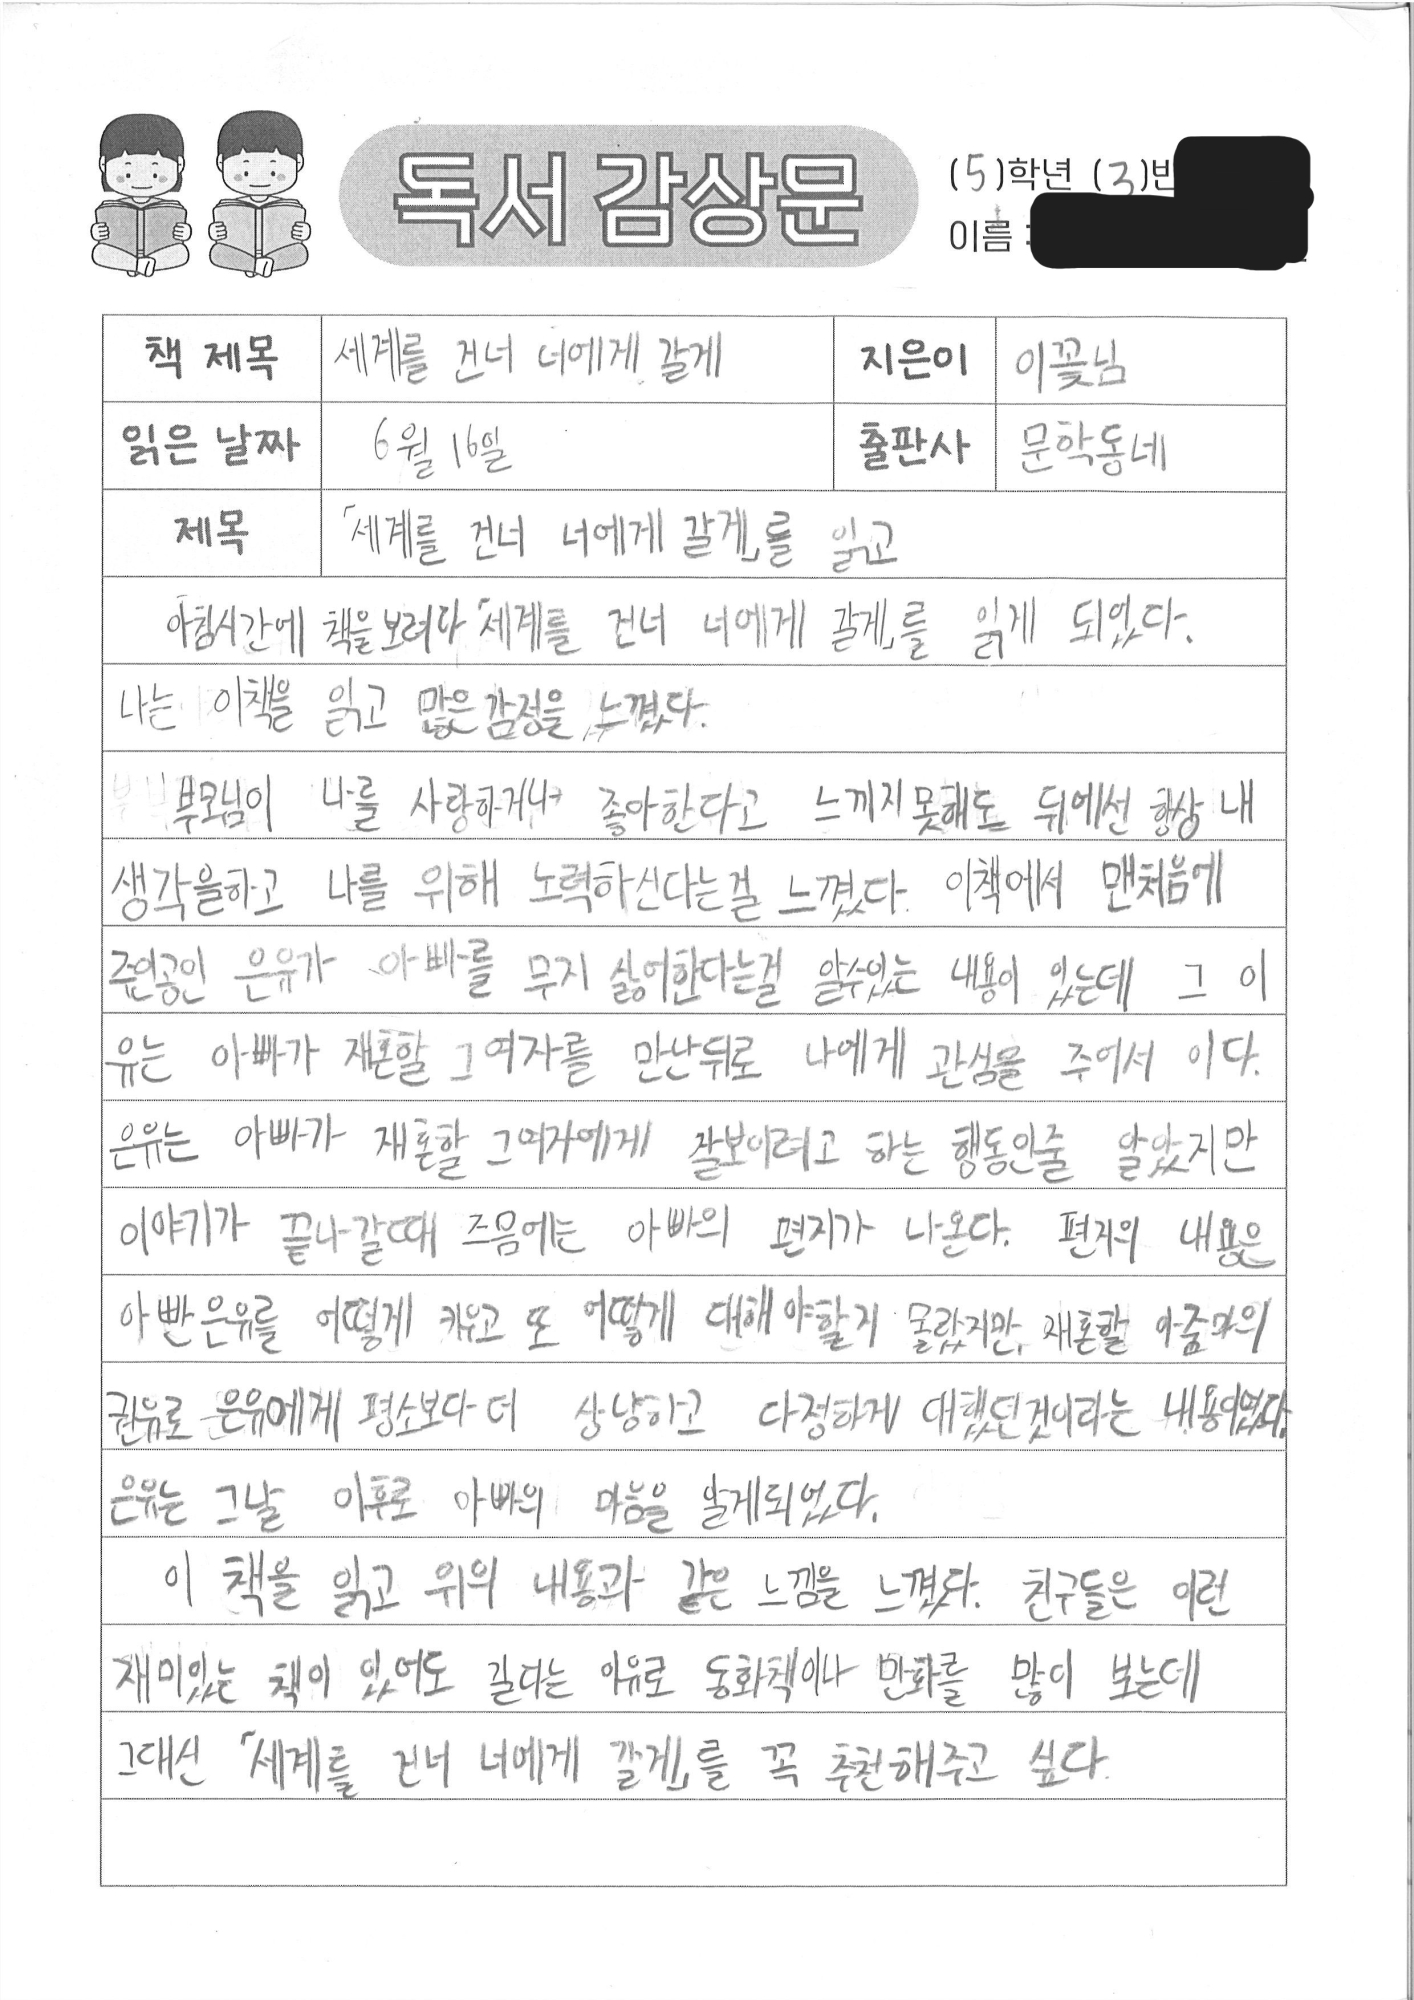 독서 감상문
(5)학년 (3)반
이름 :
책 제목 세계를 건너 너에게 갈게 지은이 이꽃님
읽은 날짜 6월 16일 출판사 문학동네
제목 「세계를 건너 너에게 갈게」를 읽고
아침시간에 책을 보려다 「세계를 건너 너에게 갈게」를 읽게 되었다.
나는 이책을 읽고 많은 감정을 느꼈다.
부모님이 나를 사랑하거나 좋아한다고 느끼지 못해도 뒤에선 항상 내
생각을하고 나를 위해 노력하신다는걸 느꼈다. 이책에서 맨처음에
주인공인 은유가 아빠를 무지 싫어한다는걸 알수있는 내용이 있는데 그 이
유는 아빠가 재혼할 그 여자를 만난뒤로 나에게 관심을 주어서 이다.
은유는 아빠가 재혼할 그여자에게 잘보이려고 하는 행동인줄 알았지만
이야기가 끝나갈때 즈음에는 아빠의 편지가 나온다. 편지의 내용은
아빤 은유를 어떻게 키우고 또 어떻게 대해야할지 몰랐지만, 재혼할 아줌마의
권유로 은유에게 평소보다 더 상냥하고 다정하게 대했던것이라는 내용이였다.
은유는 그날 이후로 아빠의 마음을 알게되었다.
이 책을 읽고 위의 내용과 같은 느낌을 느꼈다. 친구들은 이런
재미있는 책이 있어도 길다는 이유로 동화책이나 만화를 많이 보는데
그대신 「세계를 건너 너에게 갈게」를 꼭 추천해주고 싶다.